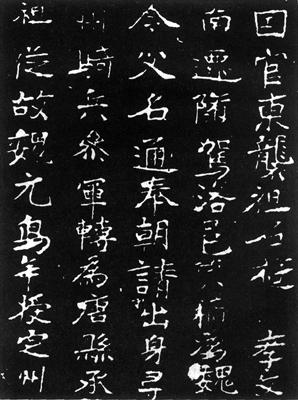 因官東襲祖石從 孝文
南遷隨駕洛邑積居魏
令父名通奉朝請出身尋
州騎兵參軍轉為唐縣承
祖從故魏元年授定州